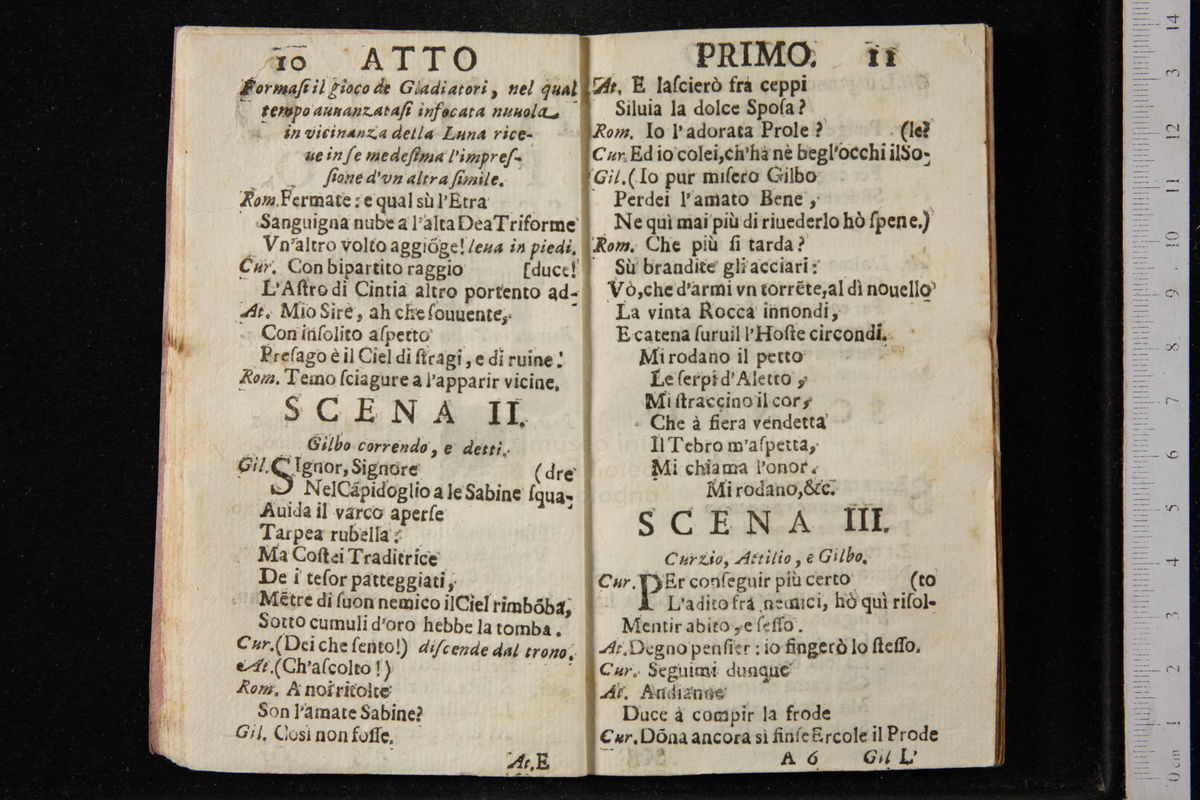 10 ATTO
Formasi il gioco de Gladiatori, nel qual
tempo auuanzatasi infocata nuuola
in vicinanza della Luna rice-
ue in se medesima l'impres-
sione d'vn altra simile.
Rom. Fermate: e qual sù l'Etra
Sanguigna nube a l'alta Dea Triforme
Vn'altro volto aggiõge! leua in piedi.
Cur. Con bipartito raggio [duce!
L'Astro di Cintia altro portento ad-
At. Mio Sire, ah che souuente,
Con insolito aspetto
Presago è il Ciel di stragi, e di ruine!
Rom. Temo sciagure a l'apparir vicine.
SCENA II.
Gilbo correndo, e detti.
Gil. SIgnor, Signore (dre
Nel Cãpidoglio a le Sabine squa-
Auida il varco aperse
Tarpea rubella:
Ma Costei Traditrice
De i tesor patteggiati,
Mẽtre di suon nemico il Ciel rimbõba,
Sotto cumuli d'oro hebbe la tomba.
Cur. (Dei che sento!) discende dal trono.
At. (Ch'ascolto!)
Rom. A noi ritolte
Son l'amate Sabine?
Gil. Così non fosse.
At. E
PRIMO. 11
At. E lascierò frà ceppi
Siluia la dolce Sposa?
Rom. Io l'adorata Prole? (le?
Cur. Ed io colei, ch'hà nè begl'occhi il So-
Gil. (Io pur misero Gilbo
Perdei l'amato Bene,
Ne quì mai più di riuederlo hò spene.)
Rom. Che più si tarda?
Sù brandite gli acciari:
Vò, che d'armi vn torrẽte, al dì nouello
La vinta Rocca innondi,
E catena seruil l'Hoste circondi.
Mi rodano il petto
Le serpi d'Aletto,
Mi straccino il cor,
Che à fiera vendetta
Il Tebro m'aspetta,
Mi chiama l'onor.
Mi rodano, &c.
SCENA III.
Curzio, Attilio, e Gilbo.
Cur. PEr conseguir più certo (to
L'adito frà nemici, hò quì risol-
Mentir abito, e sesso.
At. Degno pensier: io fingerò lo stesso.
Cur. Seguimi dunque
At. Andianne
Duce à compir la frode
Cur. Dõna ancora si finse Ercole il Prode
A 6 Gil L'